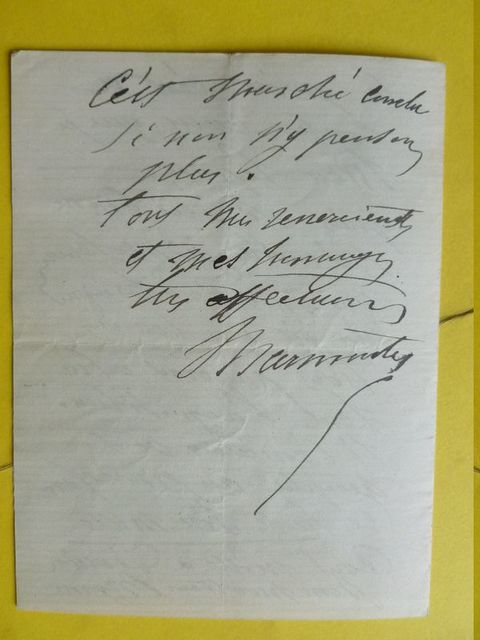 C'est marché conclu
si non n'y pensons
plus.
tous mes remerciements
et mes hommages
très affectueux
Marmontel